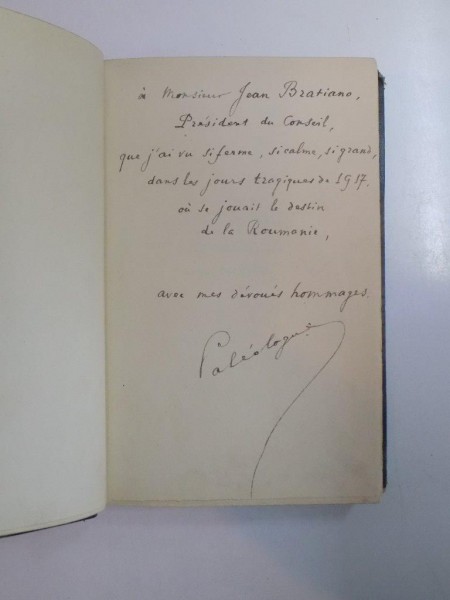 à Monsieur Jean Bratiano,
Président du Conseil,
que j'ai vu si ferme, si calme, si grand,
dans les jours tragiques de 1917.
où se jouait le destin
de la Roumanie,
avec mes dévoués hommages.
Paléologue